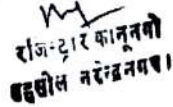 रजिस्ट्रार कानूनगो
तहसील नरेन्द्रनगर।